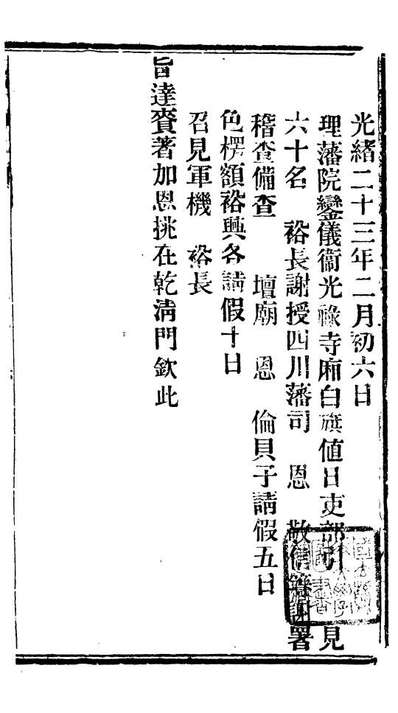 光緒二十三年二月初六日
理藩院鑾儀衞光祿寺廂白旗値日吏部引 見
六十名 裕長謝授四川藩司 恩 敬信 謝署
稽查備查 壇廟 恩 倫貝子請假五日
色楞額裕興各請假十日
召見軍機 裕長
旨達賚著加恩挑在乾清門欽此